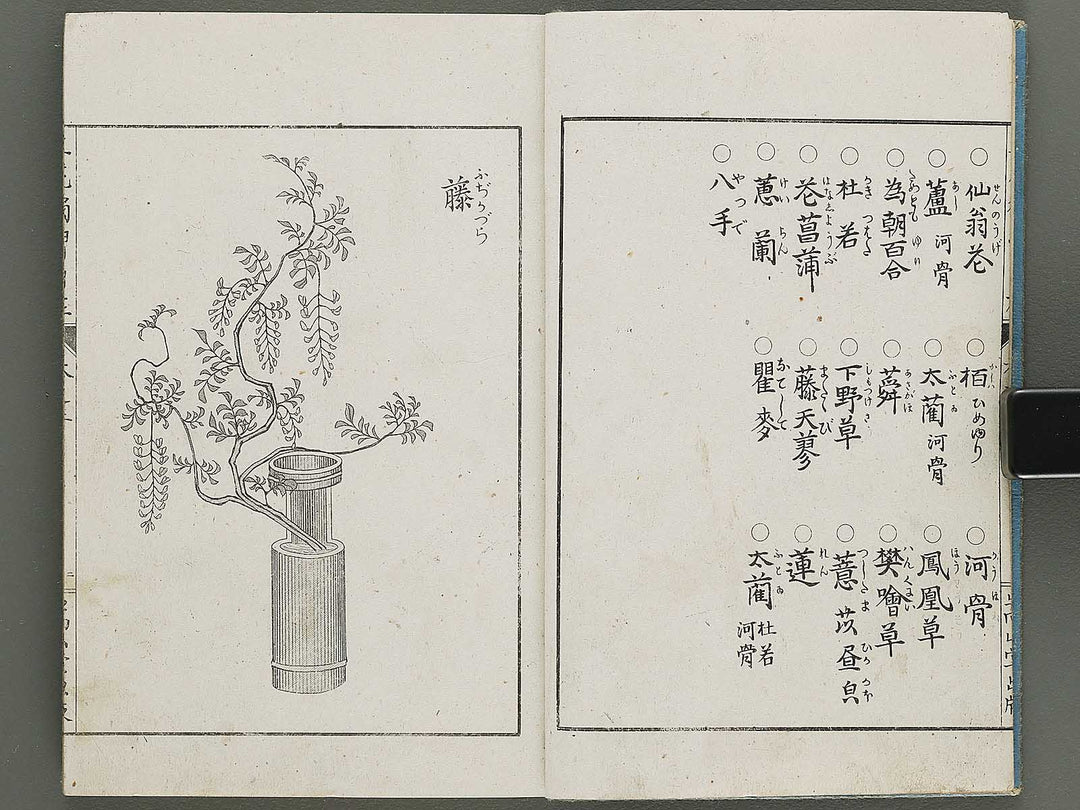 ○仙翁花 せんのうげ
○蘆 河骨 あし
○為朝百合 ためとも ゆり
○杜若 かきつばた
○花菖蒲 はなしようぶ
○蕙蘭 けいらん
○八ッ手 やつで
○栢 ひめゆり
○太藺 河骨 ふとゐ
○蕣 あさがほ
○下野草 しもつけさう
○藤天蓼 またゝび
○瞿麥 なでしこ
○河骨 かうほね
○鳳凰草
○樊噲草 はんくわい
○薏苡 昼㒵 ひるがほ
○蓮 れん
○太藺 杜若 河骨 ふとゐ
藤 ふぢかづら